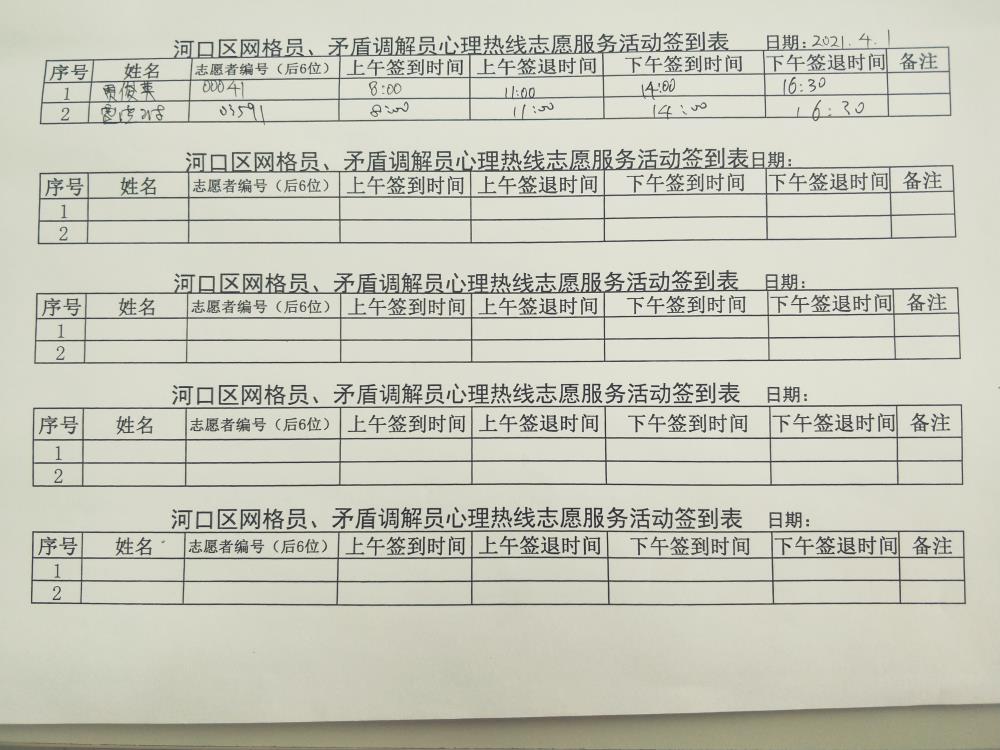 河口区网格员、矛盾调解员心理热线志愿服务活动签到表 日期:2021.4.1
序号 姓名 志愿者编号（后6位） 上午签到时间 上午签退时间 下午签到时间 下午签退时间 备注
1 贾俊英 00041 8:00 11:00 14:00 16:30
2 03591 8:00 11:00 14:00 16:30
河口区网格员、矛盾调解员心理热线志愿服务活动签到表日期:
序号 姓名 志愿者编号（后6位） 上午签到时间 上午签退时间 下午签到时间 下午签退时间 备注
1
2
河口区网格员、矛盾调解员心理热线志愿服务活动签到表 日期:
序号 姓名 志愿者编号（后6位） 上午签到时间 上午签退时间 下午签到时间 下午签退时间 备注
1
2
河口区网格员、矛盾调解员心理热线志愿服务活动签到表 日期:
序号 姓名 志愿者编号（后6位） 上午签到时间 上午签退时间 下午签到时间 下午签退时间 备注
1
2
河口区网格员、矛盾调解员心理热线志愿服务活动签到表 日期:
序号 姓名 志愿者编号（后6位） 上午签到时间 上午签退时间 下午签到时间 下午签退时间 备注
1
2